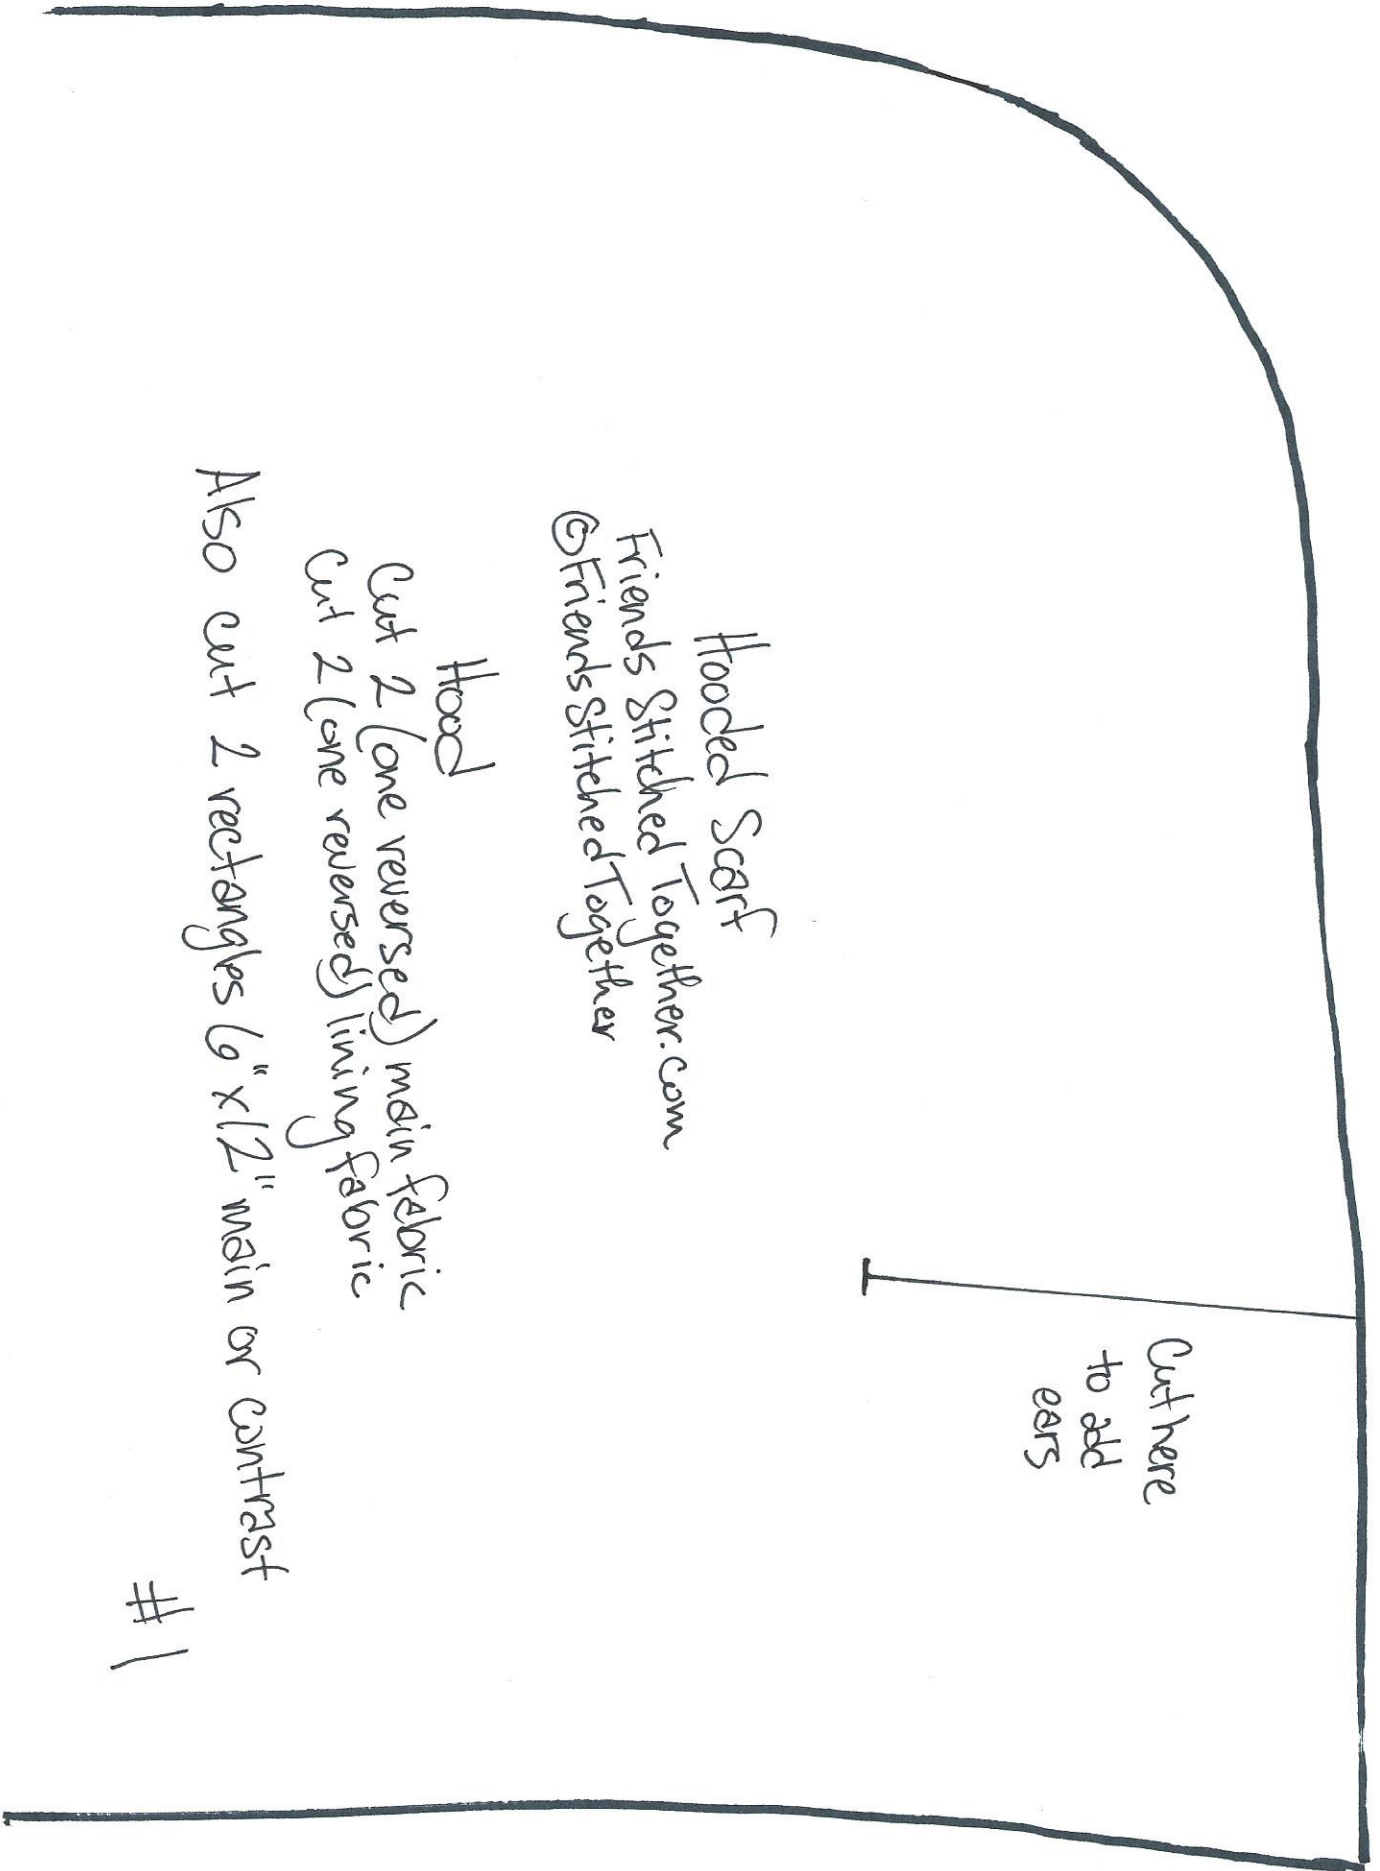 Cut here
to add
ears
Hooded Scarf
Friends Stitched Together.com
©FriendsStitchedTogether
Hood
Cut 2 (one reversed) main fabric
Cut 2 (one reversed) lining fabric
Also cut 2 rectangles 6" x 12" main or contrast
#1